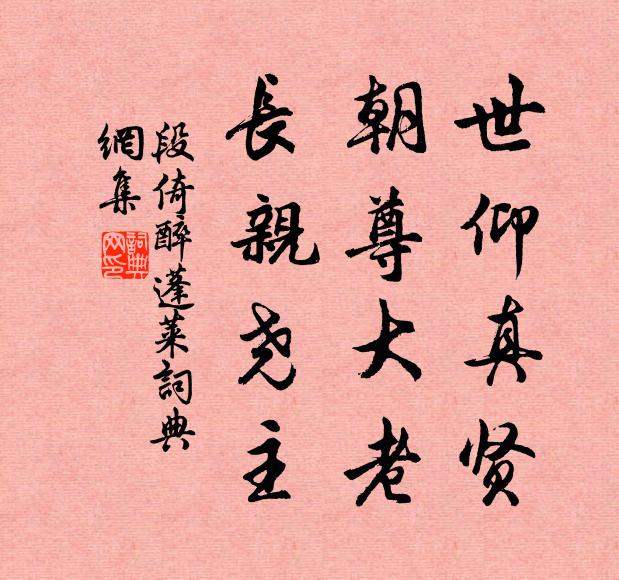 世仰真贤
朝尊大老
長親尧主
段倚醉蓬莱詞典
網集
詞典
网印